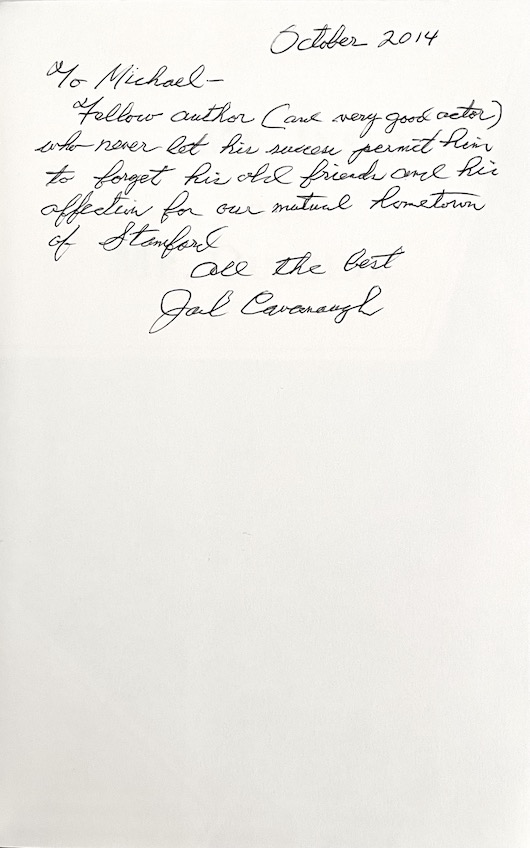 October 2014
To Michael-
Fellow author (and very good actor)
who never let his success permit him
to forget his old friends and his
affection for our mutual hometown
of Stamford
All the best
Jack Cavanaugh